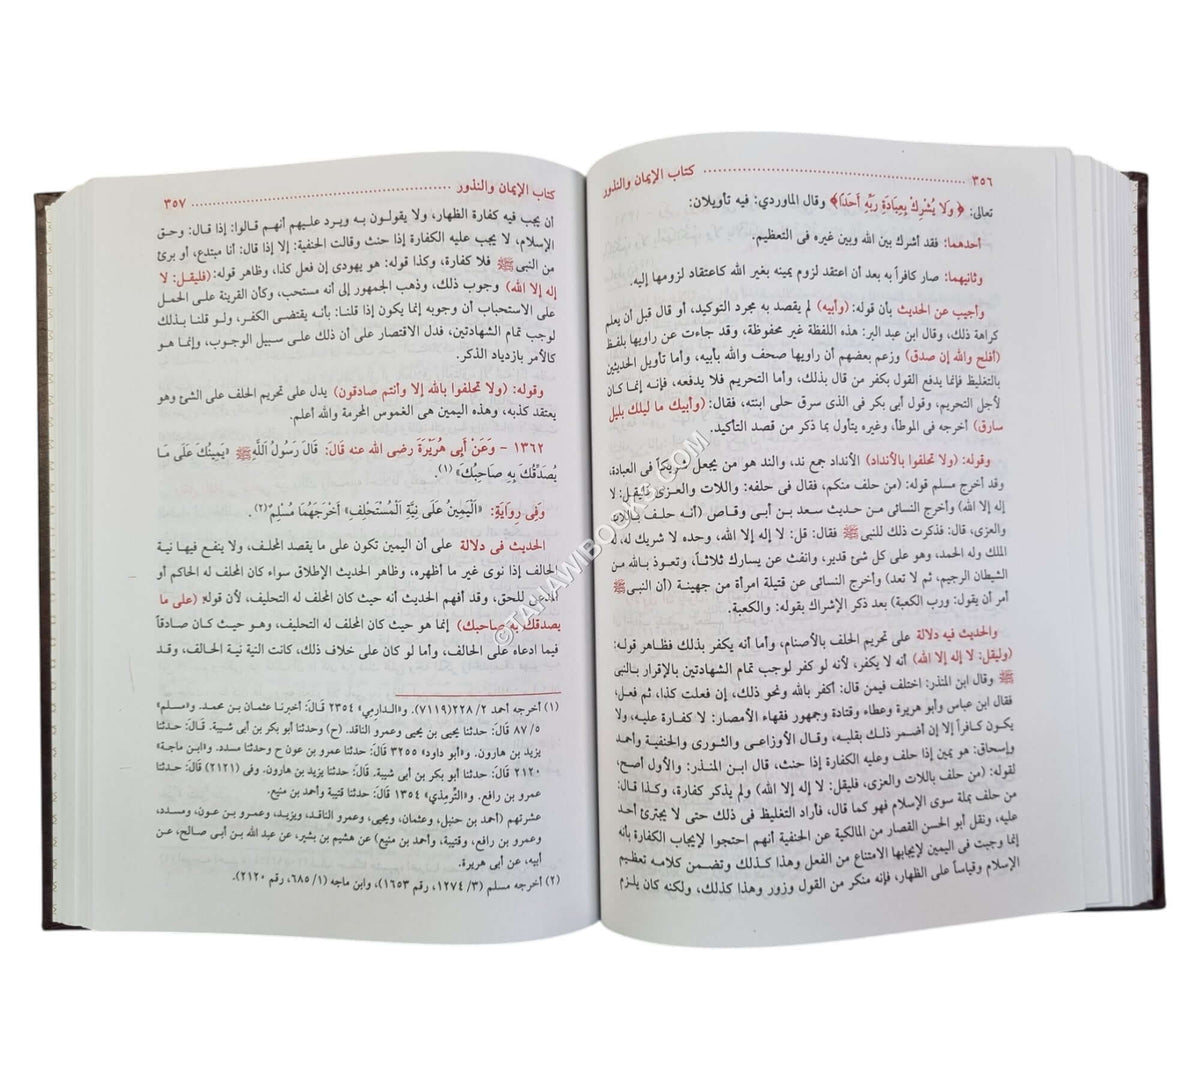 ٣٥٦ كتاب الإيمان والنذور
تعالى: ﴿وَلَا يُشْرِكْ بِعِبَادَةِ رَبِّهِ أَحَدًا﴾ وقال الماوردي: فيه تأويلان:
أحدهما: فقد أشرك بين الله وبين غيره فى التعظيم.
وثانيهما: صار كافراً به بعد أن اعتقد لزوم يمينه بغير الله كاعتقاد لزومها إليه.
وأجيب عن الحديث بأن قوله: (وأبيه) لم يقصد به مجرد التوكيد، أو قال قبل أن يعلم
كراهة ذلك، وقال ابن عبد البر: هذه اللفظة غير محفوظة، وقد جاءت عن راويها بلفظ
(أفلح والله إن صدق) وزعم بعضهم أن راويها صحف والله بأبيه، وأما تأويل الحديثين
بالتغليظ فإنما يدفع القول بكفر من قال بذلك، وأما التحريم فلا يدفعه، فإنه إنما كان
لأجل التحريم، وقول أبى بكر فى الذى سرق حلى ابنته، فقال: (وأبيك ما ليلك بليل
سارق) أخرجه فى الموطأ، وغيره يتأول بما ذكر من قصد التأكيد.
وقوله: (ولا تحلفوا بالأنداد) الأنداد جمع ند، والند هو من يجعل شريكاً فى العبادة،
وقد أخرج مسلم قوله: (من حلف منكم، فقال فى حلفه: واللات والعزى فليقل: لا
إله إلا الله) وأخرج النسائى من حديث سعد بن أبى وقاص (أنه حلف باللات
والعزى، قال: فذكرت ذلك للنبى ﷺ فقال: قل: لا إله إلا الله، وحده لا شريك له، له
الملك وله الحمد، وهو على كل شىء قدير، وانفث عن يسارك ثلاثاً، وتعوذ بالله من
الشيطان الرجيم، ثم لا تعد) وأخرج النسائى عن قتيلة امرأة من جهينة (أن النبى ﷺ
أمر أن يقول: ورب الكعبة) بعد ذكر الإشراك بقوله: والكعبة.
والحديث فيه دلالة على تحريم الحلف بالأصنام، وأما أنه يكفر بذلك فظاهر قوله:
(وليقل: لا إله إلا الله) أنه لا يكفر، لأنه لو كفر لوجب تمام الشهادتين بالإقرار بالنبى
ﷺ وقال ابن المنذر: اختلف فيمن قال: أكفر بالله ونحو ذلك، إن فعلت كذا، ثم فعل،
فقال ابن عباس وأبو هريرة وعطاء وقتادة وجمهور فقهاء الأمصار: لا كفارة عليه، ولا
يكون كافراً إلا إن أضمر ذلك بقلبه، وقال الأوزاعى والثورى والحنفية وأحمد
وإسحاق: هو يمين إذا حلف وعليه الكفارة إذا حنث، قال ابن المنذر: والأول أصح،
لقوله: (من حلف باللات والعزى، فليقل: لا إله إلا الله) ولم يذكر كفارة، وكذا قال:
من حلف بملة سوى الإسلام فهو كما قال، فأراد التغليظ فى ذلك حتى لا يجترئ أحد
عليه، ونقل أبو الحسن القصار من المالكية عن الحنفية أنهم احتجوا لإيجاب الكفارة بأنه
إنما وجبت فى اليمين لإيجابها الامتناع من الفعل وهذا كذلك وتضمن كلامه تعظيم
الإسلام وقياساً على الظهار، فإنه منكر من القول وزور وهذا كذلك، ولكنه كان يلزم
كتاب الإيمان والنذور ٣٥٧
أن يجب فيه كفارة الظهار، ولا يقولون به ويرد عليهم أنهم قالوا: إذا قال: وحق
الإسلام، لا يجب عليه الكفارة إذا حنث وقالت الحنفية: إلا إذا قال: أنا مبتدع، أو برئ
من النبى ﷺ فلا كفارة، وكذا قوله: هو يهودى إن فعل كذا، وظاهر قوله: (فليقل: لا
إله إلا الله) وجوب ذلك، وذهب الجمهور إلى أنه مستحب، وكأن القرينة على الحمل
على الاستحباب أن وجوبه إنما يكون إذا قلنا: بأنه يقتضى الكفر، ولو قلنا بذلك
لوجب تمام الشهادتين، فدل الاقتصار على أن ذلك على سبيل الوجوب، وإنما هو
كالأمر بازدياد الذكر.
وقوله: (ولا تحلفوا بالله إلا وأنتم صادقون) يدل على تحريم الحلف على الشئ وهو
يعتقد كذبه، وهذه اليمين هى الغموس المحرمة والله أعلم.
١٣٦٢ - وَعَنْ أَبِى هُرَيْرَةَ رضى الله عنه قَالَ: قَالَ رَسُولُ اللَّهِ ﷺ «يَمِينُكَ عَلَى مَا
يُصَدِّقُكَ بِهِ صَاحِبُكَ» (١).
وَفِى رِوَايَةٍ: «الْيَمِينُ عَلَى نِيَّةِ الْمُسْتَحْلِفِ» أَخْرَجَهُمَا مُسْلِمٌ(٢).
الحديث فى دلالة على أن اليمين تكون على ما يقصد المحلف، ولا ينفع فيها نية
الحالف إذا نوى غير ما أظهره، وظاهر الحديث الإطلاق سواء كان المحلف له الحاكم أو
المدعى للحق، وقد أفهم الحديث أنه حيث كان المحلف له التحليف، لأن قوله (على ما
يصدقك به صاحبك) إنما هو حيث كان المحلف له التحليف، وهو حيث كان صادقاً
فيما ادعاه على الحالف، وأما لو كان على خلاف ذلك، كانت النية نية الحالف، وقد
(١) أخرجه أحمد ٢/ ٢٢٨ (٧١١٩). و«الدارِمي» ٢٣٥٤ قال: أخبرنا عثمان بن محمد. و«مسلم»
٥/ ٨٧ قال: حدثنا يحيى بن يحيى وعمرو الناقد. (ح) وحدثنا أبو بكر بن أبى شيبة. قال: حدثنا
يزيد بن هارون. و«أبو داود» ٣٢٥٥ قال: حدثنا عمرو بن عون ح وحدثنا مسدد. و«ابن ماجة»
٢١٢٠ قال: حدثنا أبو بكر بن أبى شيبة. قال: حدثنا يزيد بن هارون. وفى (٢١٢١) قال: حدثنا
عمرو بن رافع. و«التِّرمِذي» ١٣٥٤ قال: حدثنا قتيبة وأحمد بن منيع.
عشرتهم (أحمد بن حنبل، وعثمان، ويحيى، وعمرو الناقد، ويزيد، وعمرو بن عون، ومسدد،
وعمرو بن رافع، وقتيبة، وأحمد بن منيع) عن هشيم بن بشير، عن عبد الله بن أبى صالح، عن
أبيه، عن أبى هريرة.
(٢) أخرجه مسلم (٣/ ١٢٧٤، رقم ١٦٥٣)، وابن ماجه (١/ ٦٨٥، رقم ٢١٢٠).
©TAHAWIBOOKS.COM